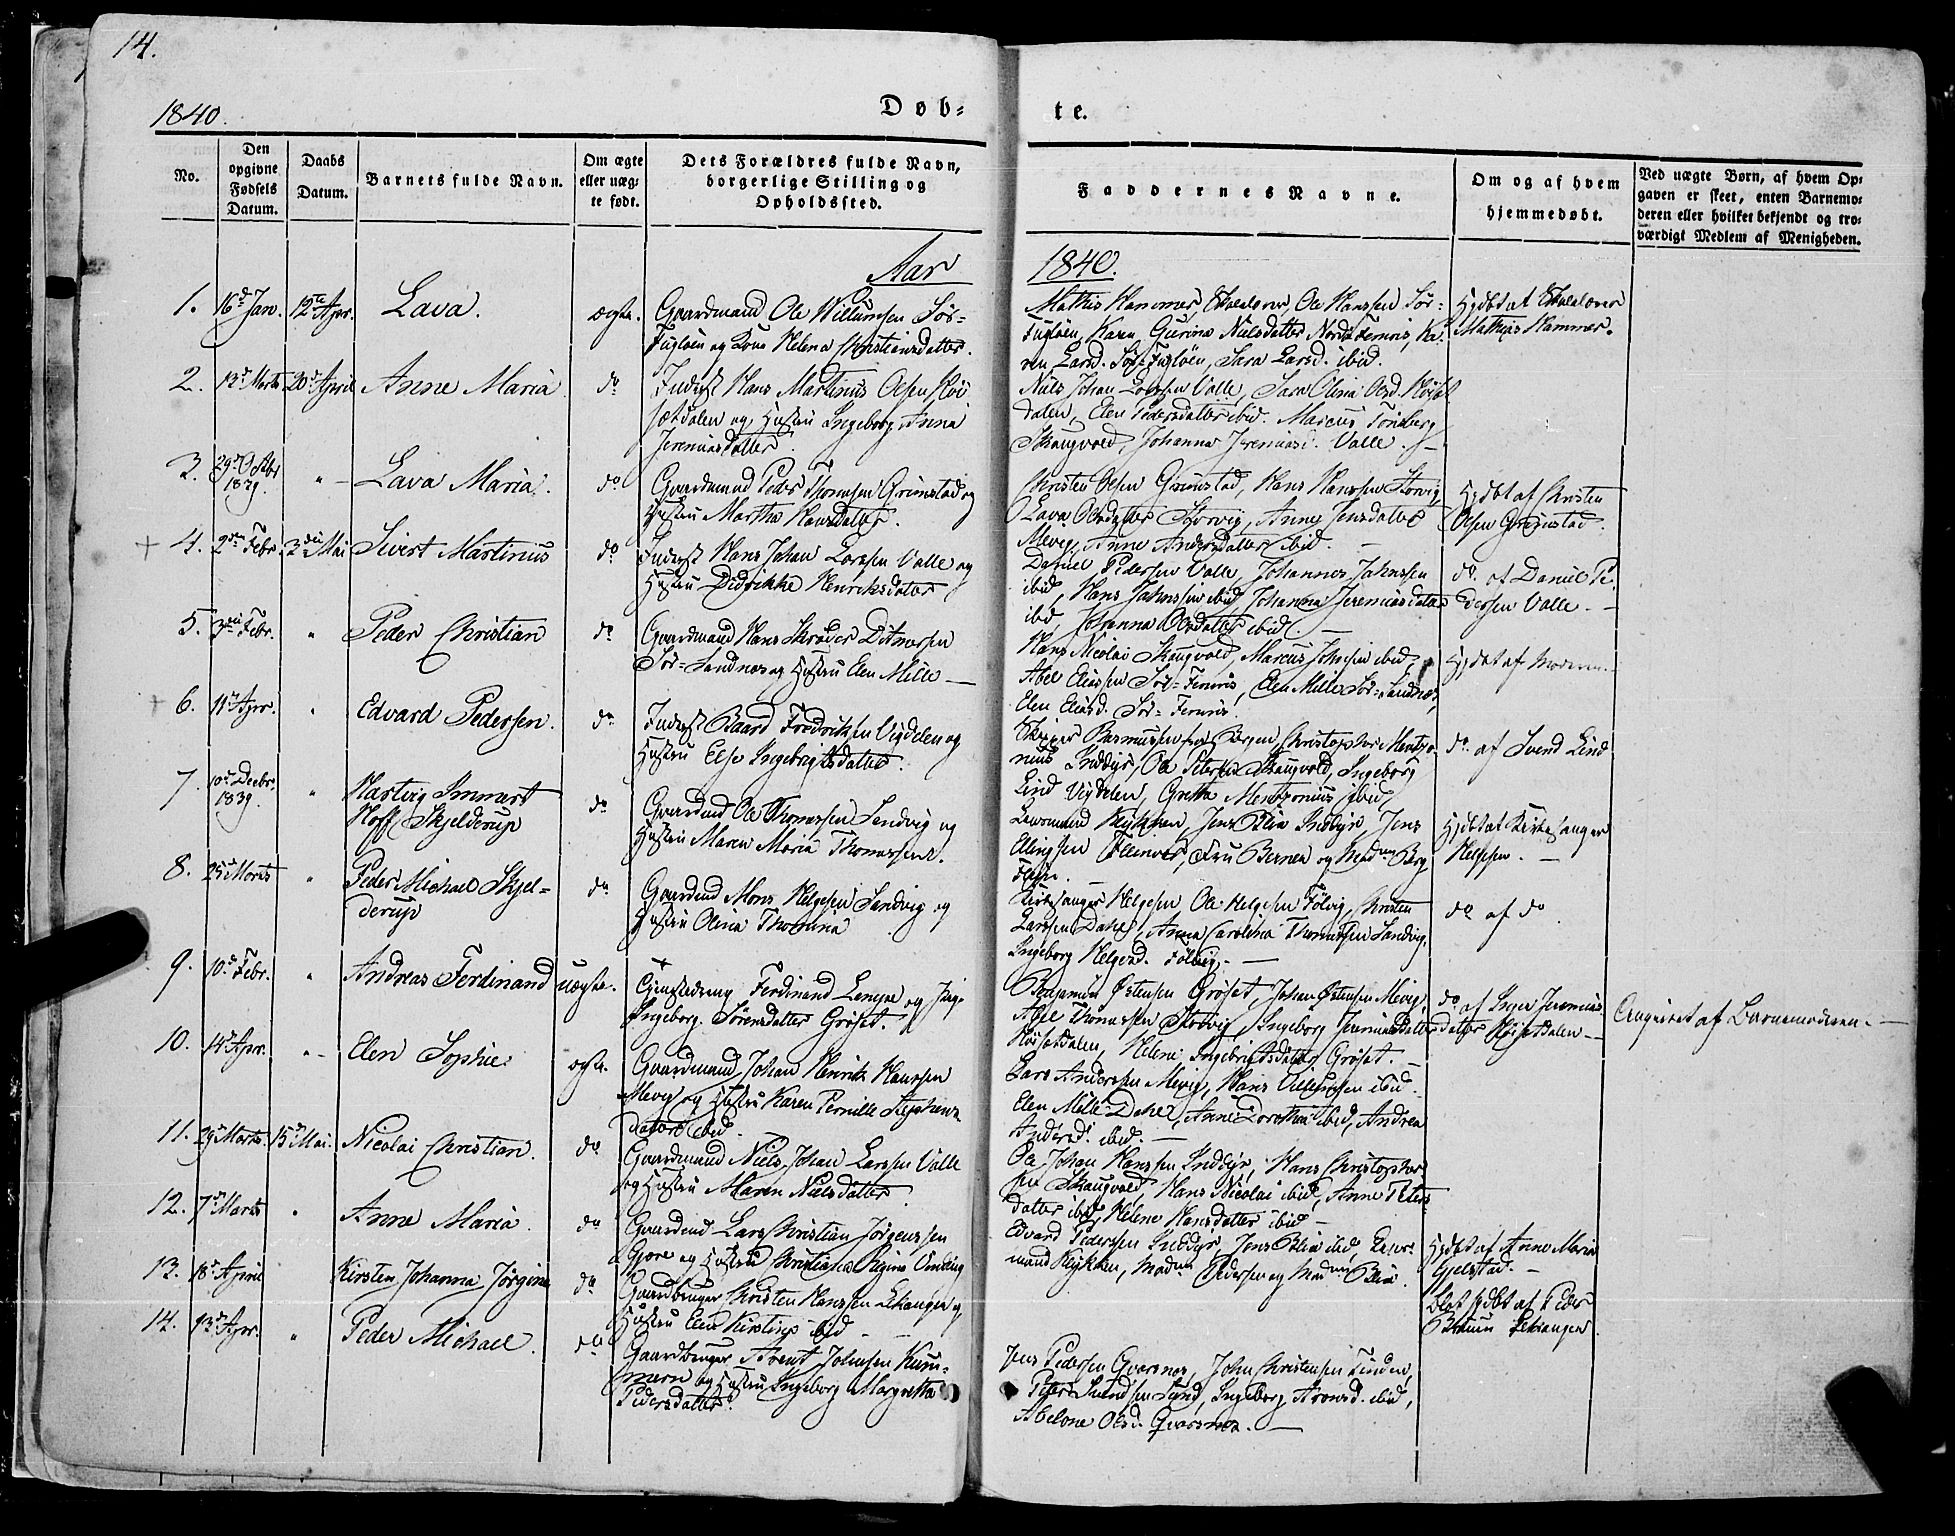 14.
1840.
Døb-
te.
No.
Den opgivne Fødsels Datum.
Daabs Datum.
Barnets fulde Navn.
Om ægte eller uæg- te født.
Dets Forældres fulde Navn, borgerlige Stilling og Opholdssted.
Faddernes Navne.
Om og af hvem hjemmedøbt.
Ved uægte Børn, af hvem Op- gaven er skeet, enten Barnemo- deren eller hvilket bekjendt og tro- værdigt Medlem af Menigheden.
Aar
1840.
1. 16d Jan. 12te Apr. Lava. ægte. Gaardmand Ole Willumsen Sør-
Fugløen og Kone Helena Christiansdatter.
Mathis Hammer, Ole Hanssen Sør-
Fugløen, Karn Gurina Nielsdatter Nordre Femris, Ka-
ren Larsd. Sør-Fugløen, Sara Larsd. ibid.
Hjdbt af Skolelærer
Mathias Hammer.
2. 13d Marts 20d April Anne Maria do Inderst Hans Martinus Olsen Høi-
sætdalen og Hustru Ingeborg Anna
Jeremiasdatter.
Niels Johan Larssen Valle, Sara Olina Olsd. Høiset
dalen, Elen Pedersdatter ibid. Marcus Tønsberg
Skaugvold, Johanna Jeremiasd. Valle.
3. 29d Octbr 1839. " Lava Maria. do Gaardmand Peder Thomsen Grimstad og
Hustru Martha Hansdatter.
Christen Olsen Grimstad, Hans Hanssen Storvig,
Lava Olsdatter Storvig, Anne Jensdatter
Mevig, Anne Andersdatter ibid.
Hjdbt af Christen
Olsen Grimstad.
4. 2den Febr. 3die Mai Sivert Martinus do Inderst Hans Johan Larssen Valle og
Hustru Didrikke Henriksdatter
Daniel Pedersen Valle, Johannes Johnssen
ibid, Hans Johnssen ibid, Johanna Jeremiasdatter
ibid, Johanna Olsdatter ibid.
do af Daniel Pe-
dersen Valle.
5. 3die Febr. " Peder Christian do Gaardmand Hans Skrøder Ditmersen
Sør-Sandnes og Hustru Elen Mille
Hans Nicolai Skaugvold, Marcus Johnsen ibid,
Abel Eliassen Sør-Femris, Elen Mille Sør-Sandnes,
Elen Eliasd. Sør-Femris.
Hjdbt af Moderen.
6. 11te Apr. " Edvard Pedersen. do Inderst Baard Fredriksen Vigdelen og
Hustru Else Ingebrigtsdatter.
Skipper Rasmussen fra Bergen, Christopher Mentzo-
nius Inddyr, Ole Petersen Skaugvold, Ingeborg
Lind Vigdelen, Gretha Mentzonius ibid,
do af Svend Lind
7. 10de Decbr. 1839. " Hartvig Immert
Hoff Skjelderup do Gaardmd Ole Thomassen Sandvig og
Hustru Maren Maria Thomassen.
Lensmand Klykken, Jens Blix Inddyr, Jens
Ellingsen Fleinvær, Fru Berner og Madm Berg
Hjdbt af Kirkesanger
Helgesen.
8. 25d Marts " Peder Michael Skjel-
derup do Gaardmd Mons Helgesen Sandvig og
Hustru Olina Thomina
Kirkesanger Helgesen, Ole Helgesen Følvig, Christen
Larssen Dahle, Anna Carolina Thomassen Sandvig,
Ingeborg Helgesd. Følvig.
do af do.
9. 10d Febr. " Andreas Ferdinand uægte. Tjenestedreng Ferdinand Lempe og Pige
Ingeborg Sørensdatter Grøset.
Benjamin Østensen Grøset, Johan Østensen Mevig,
Abel Thomassen Storvig, Ingeborg Jeremiasdatter
Høisetdalen, Helena Ingebrigtsdatter Grøset.
do af Inger Jeremias
datter Høisetdalen
Angivet af Barnemoderen.
10. 14d Apr. " Elen Sophie. ægte. Gaardmand Johan Henrik Hanssen
Mevig og Hustru Karen Pernille Stephens-
datter ibid.
Lars Anderssen Mevig, Hans Villumsen ibid.
Elen Mille Dahle, Anne Dorothea ibid, Andrea
Andersd. ibid.
11. 29d Marts. 15d Mai. Nicolai Christian. do Gaardmand Niels Johan Larssen Valle
og Hustru Maren Nielsdatter
Ole Johan Hanssen Inddyr, Hans Christopher-
sen Skaugvold, Hans Nicolai ibid, Anne Peters-
datter ibid, Helene Hansdatter ibid
12. 7d Marts " Anne Maria. do Gaardmd Lars Christian Jørgenssen
Gjøre og Hustru Christiana Regina Vinding
Edvard Pederssen Inddyr, Jens Blix ibid, Lens-
mand Klykken, Madm Pedersen og Madm Blix.
Hjdbt af Anne Maria
Gjelstad.
13. 18d April Kirsten Johanna Jørgina do Gaardbruger Christen Hanssen Ekanger og
Hustru Elen Kirstine ibid
blot hjdbt af Peder
Bruun Ekanger.
14. 13d Apr. " Peder Michael. do Gaardbruger Arent Johnsen Kum-
mern og Hustru Ingeborg Margretha
Pedersdatter.
Jens Pedersen Qvarsnes, John Christensen Finden,
Peter Svendsen Lund, Ingeborg Aronsd. ibid,
Abelone Olsd. Qvarsnes.